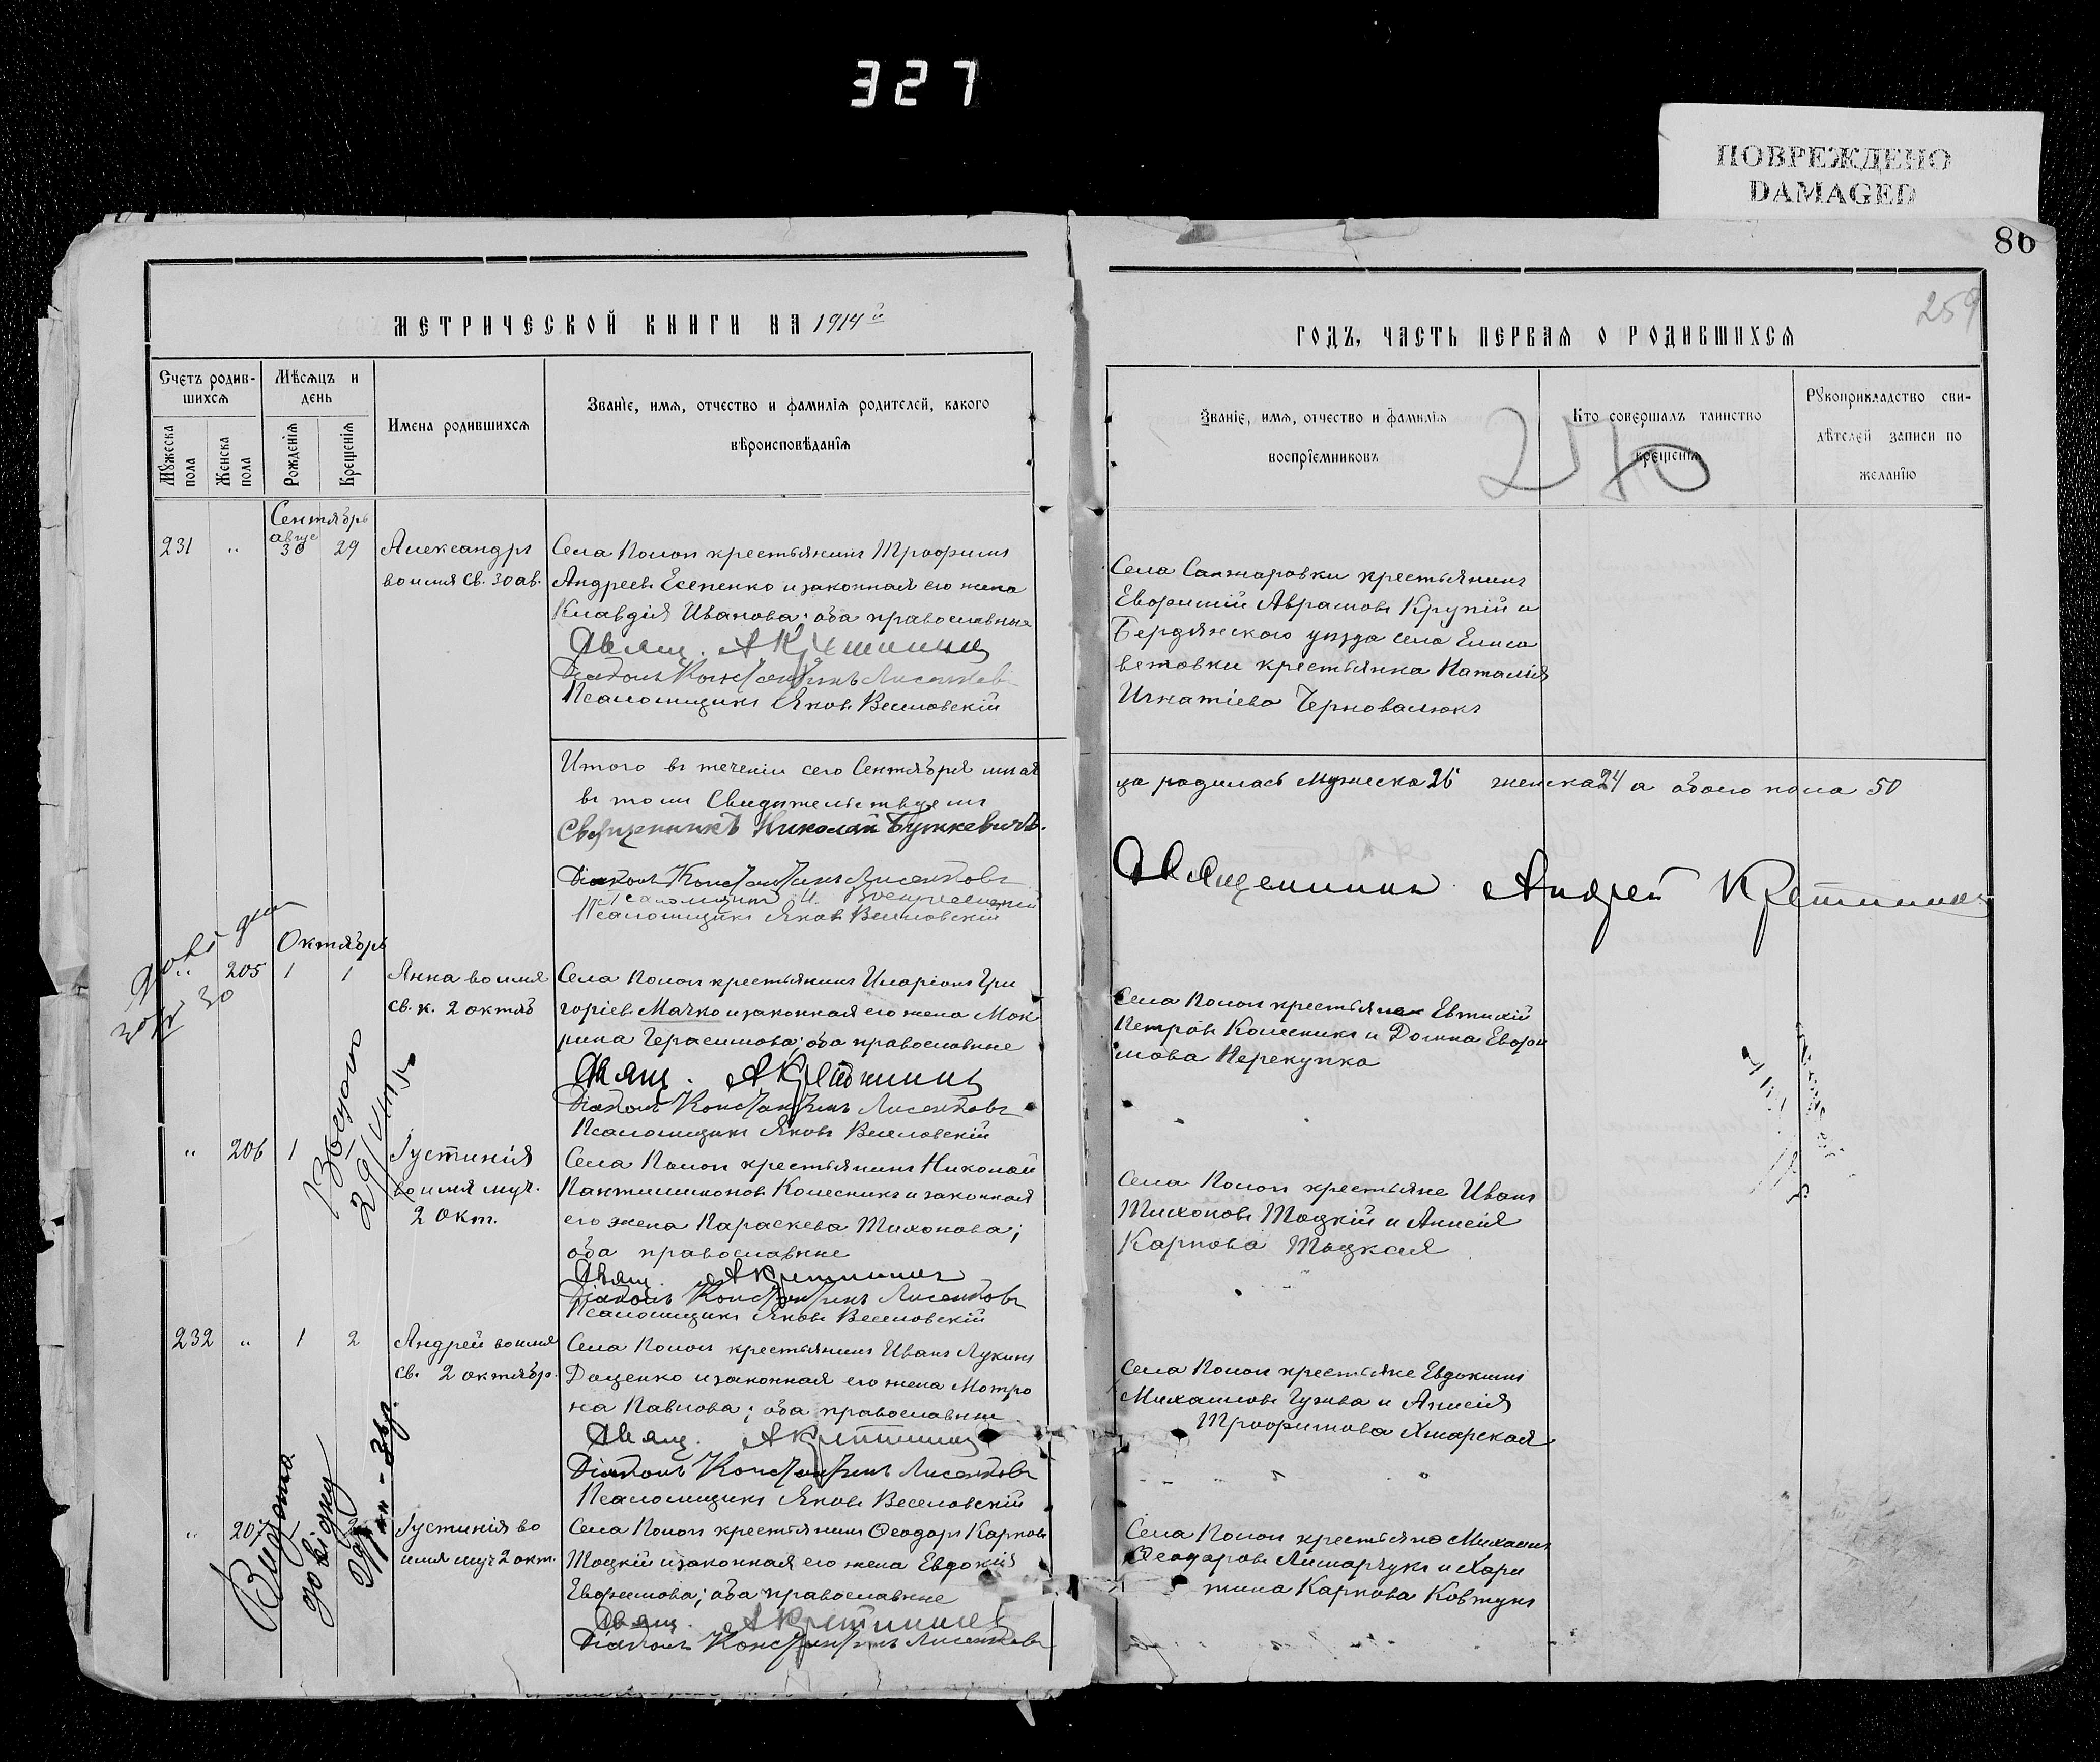 327
ПОВРЕЖДЕНО
DAMAGED
86
259
МЕТРИЧЕСКОЙ КНИГИ НА 1914й
ГОДЪ, ЧАСТЬ ПЕРВАЯ О РОДИВШИХСЯ
Счетъ родив-
шихся
Мѣсяцъ и
день
Мужеска
пола
Женска
пола
Рожденія
Крещенія
Имена родившихся
Званіе, имя, отчество и фамилія родителей, какого
вѣроисповѣданія
Званіе, имя, отчество и фамилія
воспріемниковъ
Кто совершалъ таинство
крещенія
Рукоприкладство сви-
дѣтелей записи по
желанію
270
Сентябрь
231 " авгус 30 29
Александръ
во имя св. 30 ав.
Села Пологъ крестьянинъ Трофимъ
Андреевъ Есепенко и законная его жена
Клавдія Иванова; оба православные
Свящ. А Кретининъ
Діаконъ Константинъ Лисенковъ
Псаломщикъ Яковъ Веселовскій
Села Санжаровки крестьянинъ
Евфимій Аврамовъ Крупій и
Бердянского уѣзда села Елиса
ветовки крестьянка Наталія
Игнатіева Черновалюкъ
Итого въ теченіи сего Сентября мѣся
ца родилась мужеска 26 женска 24 а обоего пола 50
въ томъ свидѣтельствуемъ
Священникъ Николай
Діаконъ Константинъ Лисенковъ
Псаломщикъ
Псаломщикъ Яковъ Веселовскій
Священникъ Андрей Кретининъ
Октябрь
" 205 1 1
Анна во имя
св. к. 2 октяб
Села Пологъ крестьянинъ Иларіонъ Гри
горіевъ Мачко и законная его жена Мок
рина Герасимова; оба православные
Свящ. А Кретининъ
Діаконъ Константинъ Лисенковъ
Псаломщикъ Яковъ Веселовскій
Села Пологъ крестьяне Евтихій
Петровъ Колесникъ и Домна Евфи
мова Перекупка
" 206 1
Іустинія
во имя муч.
2 окт.
Села Пологъ крестьянинъ Николай
Пантилимоновъ Колесникъ и законная
его жена Параскева Тихонова;
оба православные
Свящ. А Кретининъ
Діаконъ Константинъ Лисенковъ
Псаломщикъ Яковъ Веселовскій
Села Пологъ крестьяне Иванъ
Тихоновъ Тоцкій и Анисія
Карпова Тоцкая
232 " 1 2
Андрей во имя
св. 2 октябр.
Села Пологъ крестьянинъ Иванъ Лукинъ
Доценко и законная его жена Матро
на Павлова; оба православные
Свящ. А Кретининъ
Діаконъ Константинъ Лисенковъ
Псаломщикъ Яковъ Веселовскій
Села Пологъ крестьяне Евдокимъ
Михаиловъ Гужва и Анисія
Трофимова Хмарская
" 207 2
Іустинія во
имя муч 2 окт.
Села Пологъ крестьянинъ Ѳеодоръ Карповъ
Тоцкій и законная его жена Евдокія
Евфимова; оба православные
Свящ. А Кретининъ
Діаконъ Константинъ Лисенковъ
Села Пологъ крестьяне Михаилъ
Ѳеодоровъ Лимарчукъ и Хари
тина Карпова Ковтунъ
Видана
довідку